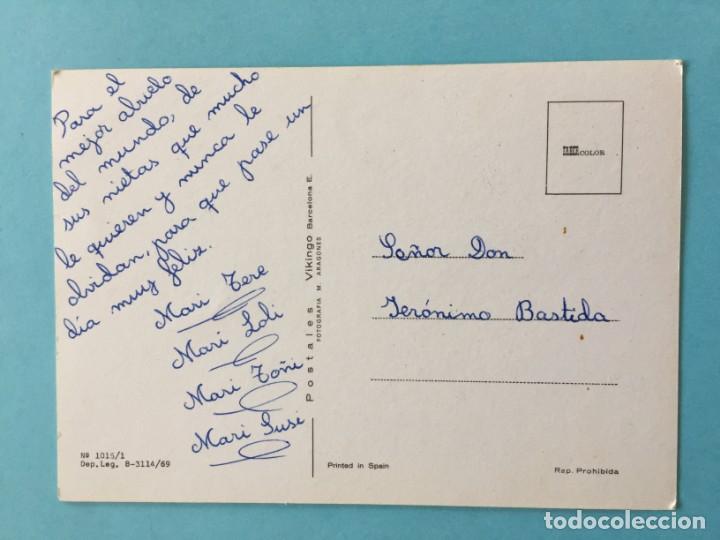 Para el
mejor abuelo
del mundo, de
sus nietas que mucho
le quieren y nunca le
olvidan, para que pase un
día muy feliz.
Mari Tere
Mari Loli
Mari Toñi
Mari Susi
Nº 1015/1
Dep. Leg. B-3114/69
Postales Vikingo Barcelona E.
FOTOGRAFIA M. ARAGONES
COLOR
Señor Don
Jerónimo Bastida
Printed in Spain
Rep. Prohibida
todocoleccion.net